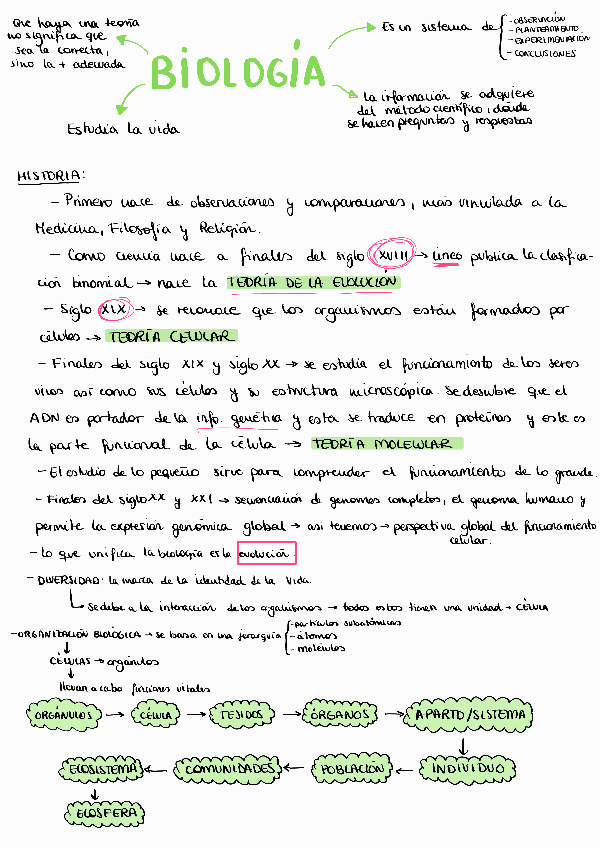 Que haya una teoría
no significa que
sea la correcta,
sino la + adecuada
BIOLOGÍA
Es un sistema de
- OBSERVACIÓN
- PLANTEAMIENTO
- EXPERIMENTACIÓN
- CONCLUSIONES
Estudia la vida
La información se adquiere
del método científico, donde
se hacen preguntas y respuestas
HISTORIA:
- Primero nace de observaciones y comparaciones, más vinculada a la
Medicina, Filosofía y Religión.
- Como ciencia nace a finales del siglo XVIII → Lineo publica la clasifica-
ción binomial → nace la TEORÍA DE LA EVOLUCIÓN
- Siglo XIX → se reconoce que los organismos están formados por
células → TEORÍA CELULAR
- Finales del siglo XIX y siglo XX → se estudia el funcionamiento de los seres
vivos así como sus células y su estructura microscópica. Se descubre que el
ADN es portador de la info. genética y esta se traduce en proteínas y este es
la parte funcional de la célula → TEORÍA MOLECULAR
- El estudio de lo pequeño sirve para comprender el funcionamiento de lo grande.
- Finales del siglo XX y XXI → secuenciación de genomas completos, el genoma humano y
permite la expresión genómica global → así tenemos → perspectiva global del funcionamiento
celular.
- Lo que unifica la biología es la evolución.
- DIVERSIDAD: la marca de la identidad de la vida.
Se debe a la interacción de los organismos → todos estos tienen una unidad → CÉLULA
- ORGANIZACIÓN BIOLÓGICA → se basa en una jerarquía
- partículas subatómicas
- átomos
- moléculas
CÉLULAS → orgánulos
llevan a cabo funciones vitales
ORGÁNULOS → CÉLULA → TEJIDOS → ÓRGANOS → APARTO/SISTEMA
ECOSISTEMA ← COMUNIDADES ← POBLACIÓN ← INDIVIDUO
ECOSFERA